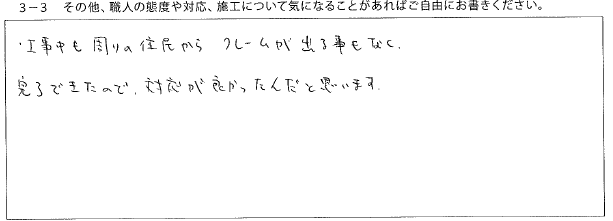 3−3　その他、職人の態度や対応、施工について気になることがあればご自由にお書きください。
・工事中も周りの住民から クレームが出る事もなく、
完了できたので、対応が良かったんだと思います。